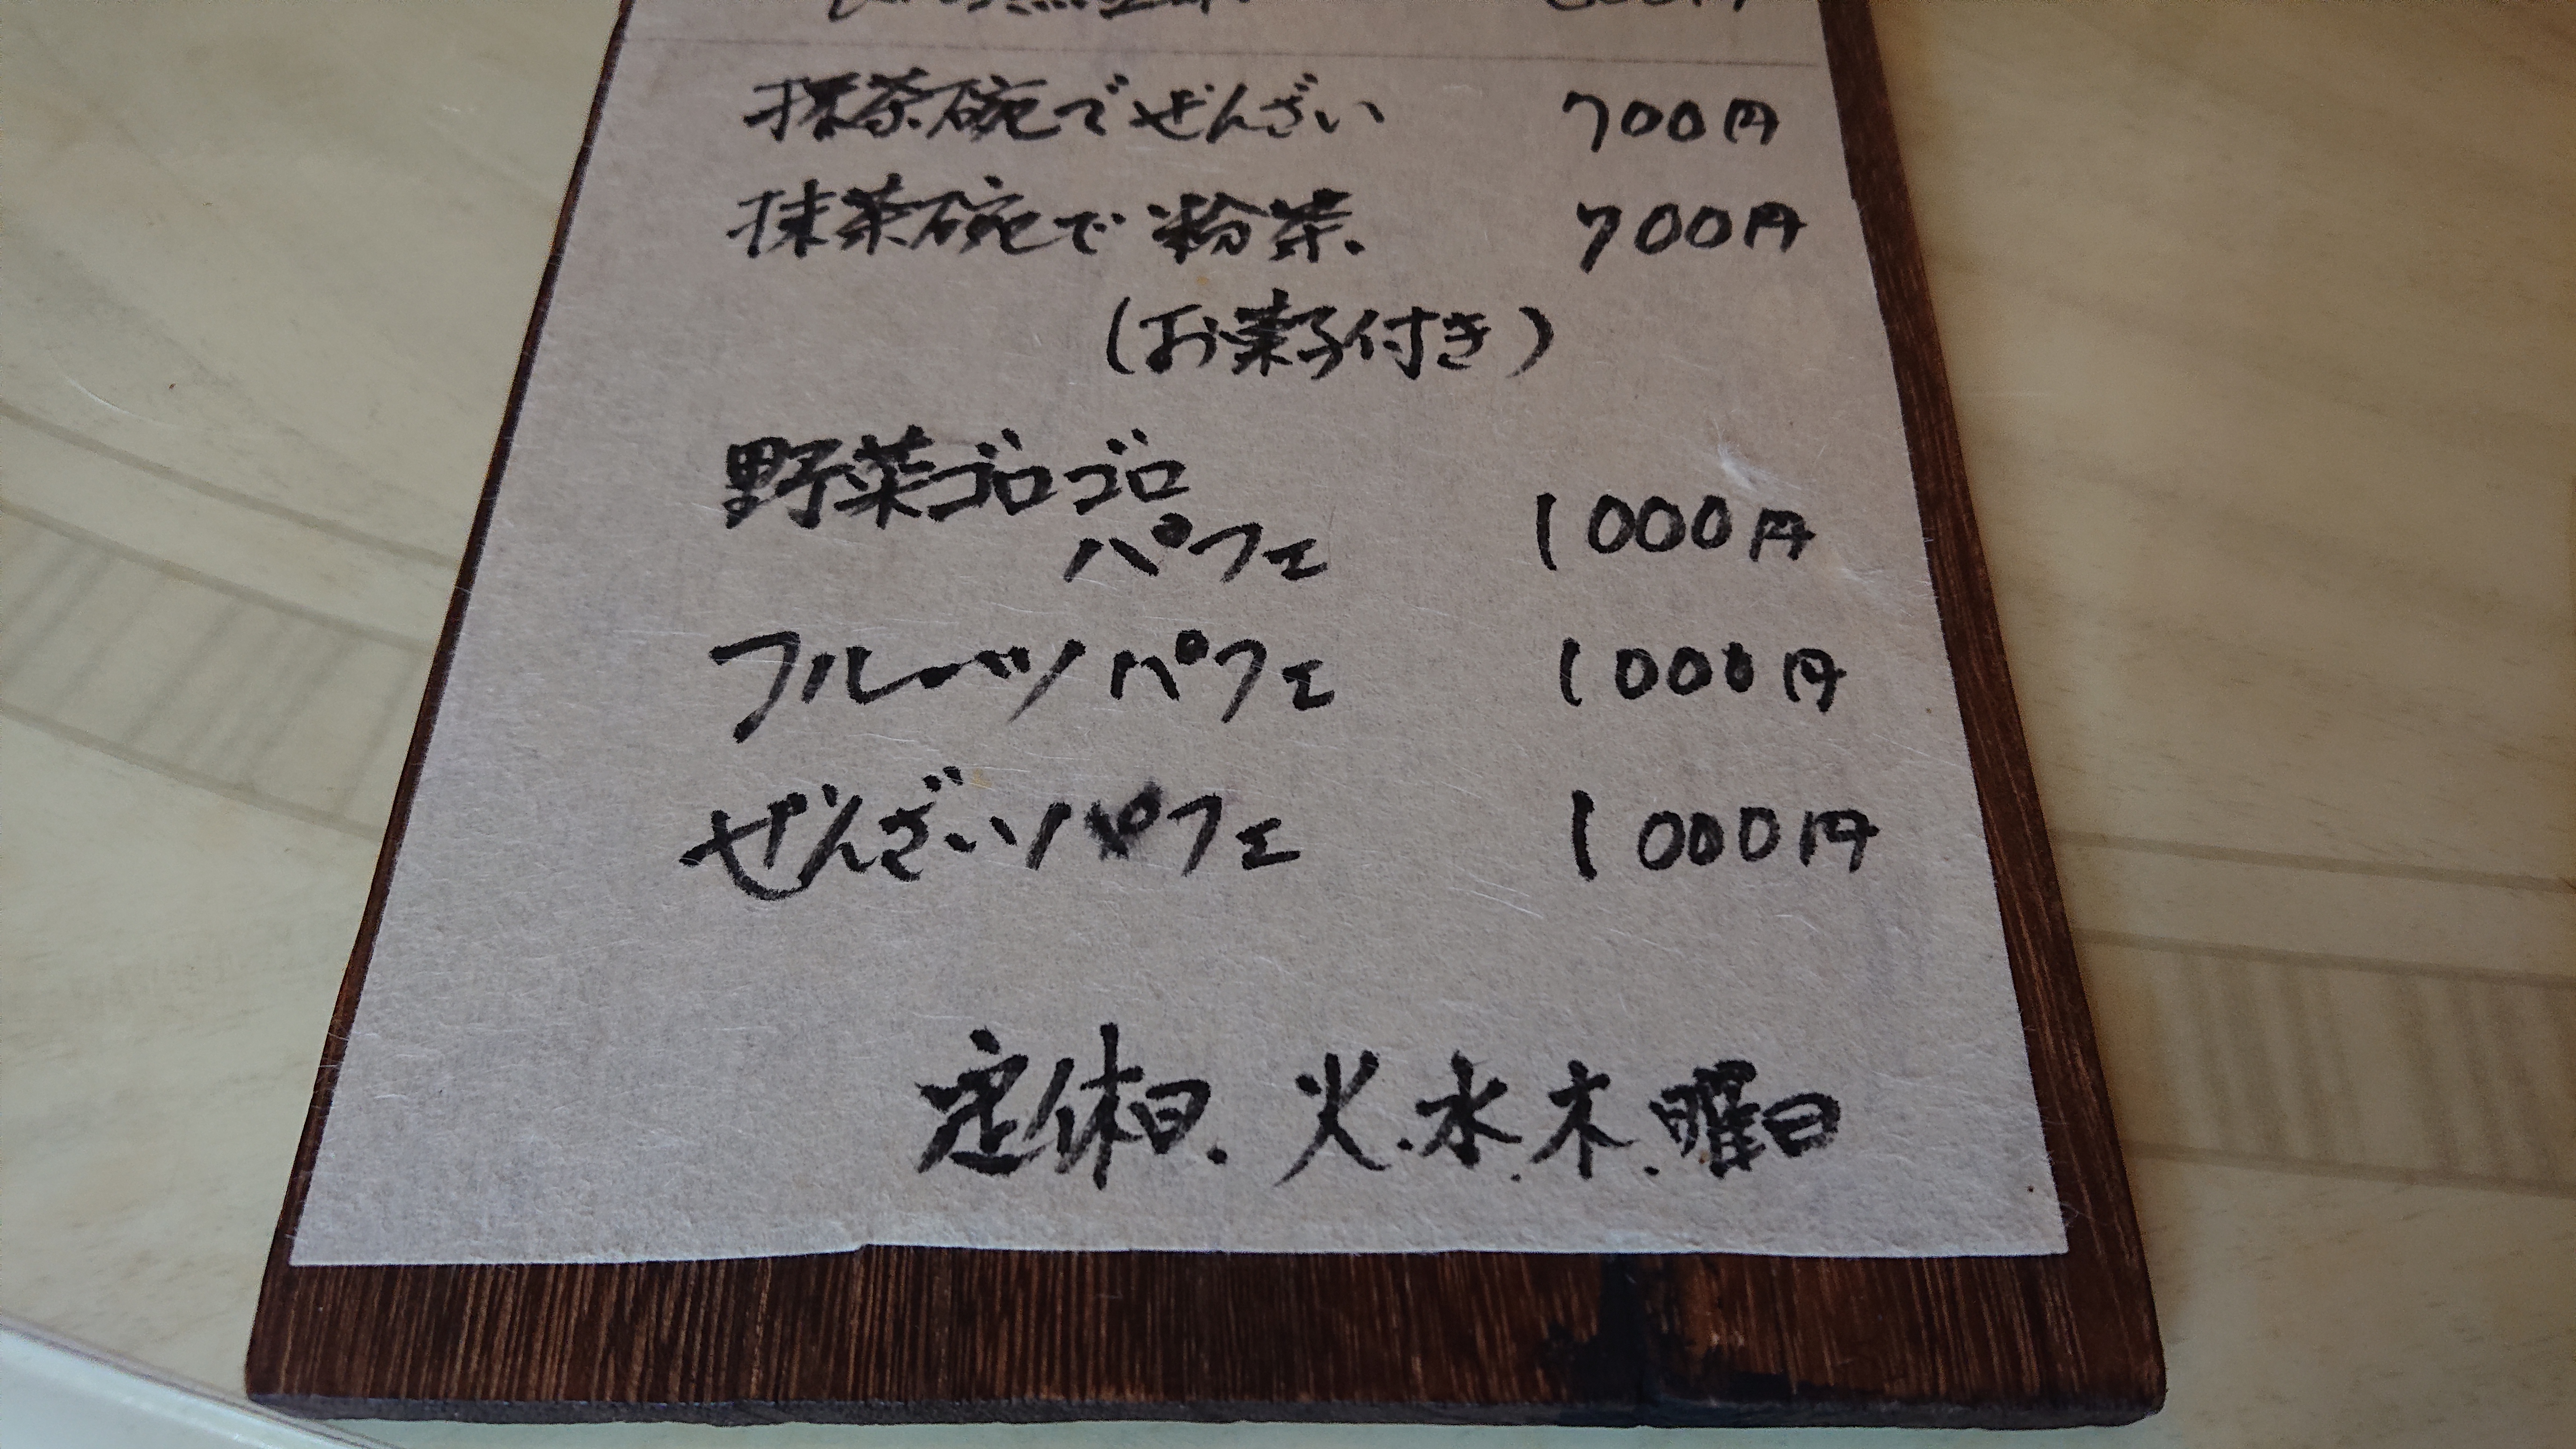 抹茶碗でぜんざい 700円
抹茶碗で粉茶. 700円
(お菓子付き)
野菜ゴロゴロ
パフェ 1000円
フルーツパフェ 1000円
ぜんざいパフェ 1000円
定休日. 火.水.木.曜日